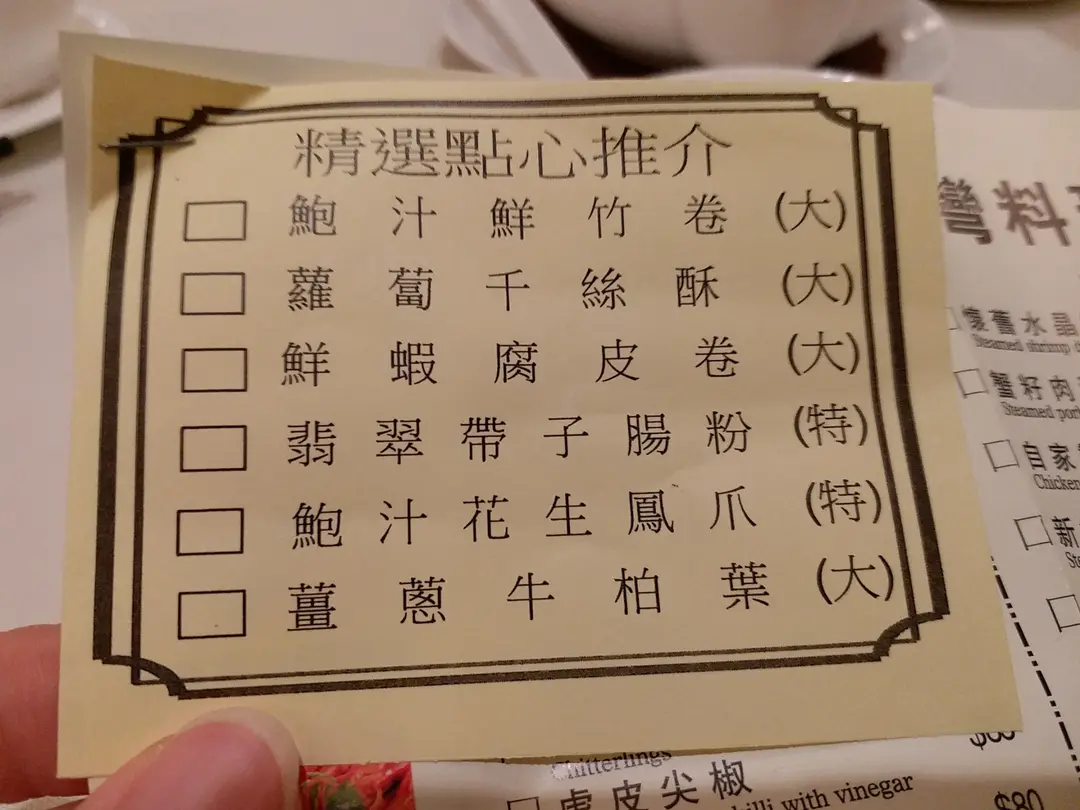 精選點心推介
鮑汁鮮竹卷(大)
蘿蔔千絲酥(大)
鮮蝦腐皮卷(大)
翡翠帶子腸粉(特)
鮑汁花生鳳爪(特)
薑蔥牛柏葉(大)
彎料
懷舊水晶
Steamed shrimp
蟹籽肉
Steamed
自家
Chicken
新
Chitterlings
虎皮尖椒
with vinegar
$80